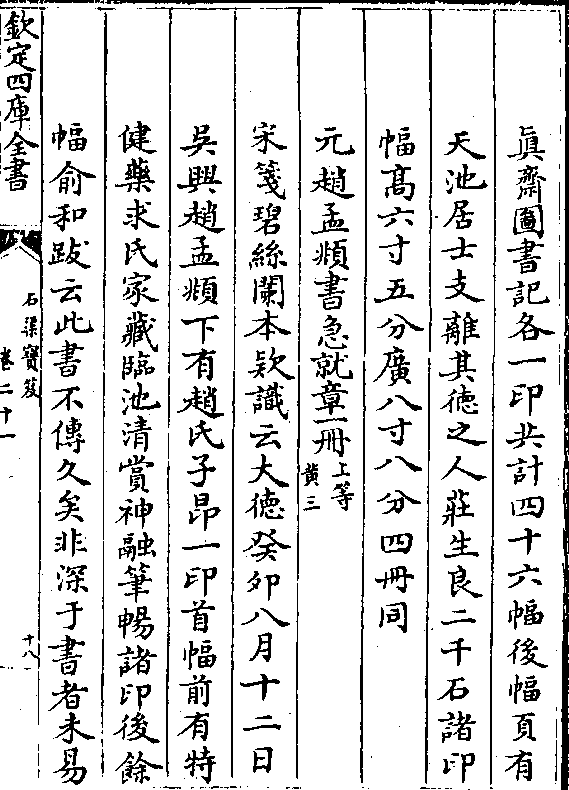 眞齋圖書記各一印共計四十六幅後幅頁有
天池居士支離其德之人莊生良二千石諸印
幅髙六寸五分廣八寸八分四冊同
元趙孟頫書急就章一冊上等黃三
宋箋碧絲闌本欵識云大德癸卯八月十二日
吳興趙孟頫下有趙氏子昂一印首幅前有特
健藥求氏家藏臨池清賞神融筆暢諸印後餘
幅俞和跋云此書不傳久矣非深于書者未易
欽定四庫全書
石渠寶笈
卷二十一
十八